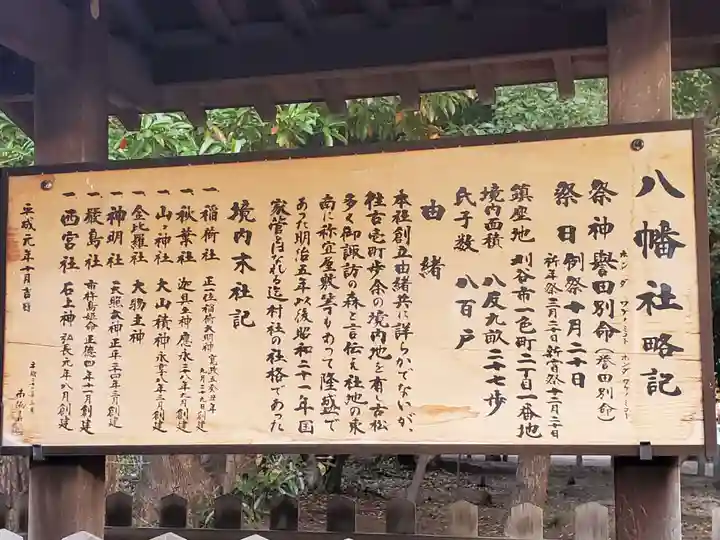 八幡社略記
祭神 誉田別命(誉田別命)
ホンダワケノミコト ホンダワケノミコト
祭日 例祭十月二十日
祈年祭三月二十日 新甞祭十二月二十日
鎮座地 刈谷市一色町二丁目一番地
境内面積 八反九畝二十七歩
氏子数 八百戸
由緒
本社創立由緒共に詳らかでないが、
往古壱町歩余の境内地を有し古松
多く御諏訪の森と言伝え社地の東
南に祢宜屋敷等もあって隆盛で
あった明治五年以後昭和二十一年国
家管とはなれる迄村社の社格であった
境内末社記
一 稲荷社 正一位稲荷大明神 寛政五癸丑年九月二十九日創建
一 秋葉社 迦具土神 應永二八年九月創建
一 山ノ神社 大山積神 永享十八年三月創建
一 金比羅社 大物主神
一 神明社 天照大神 正平二十四年三月創建
一 厳島社 市杵島姫命 正徳四年二月創建
一 西宮社 石上神 弘長元年八月創建
平成元年十月吉日